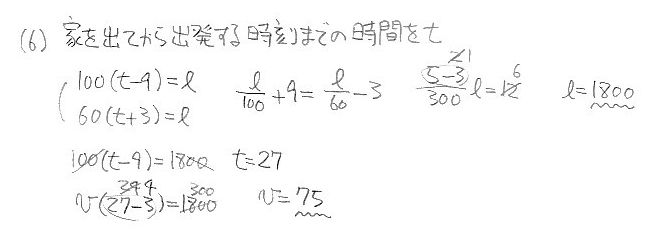 (6) 家を出てから出発する時刻までの時間をt
100(t-9)=l l/100+9=l/60-3 (5-3)/300 l=12 6 l=1800
21
60(t+3)=l
100(t-9)=1800 t=27
v(27-3)=1800 v=75
300